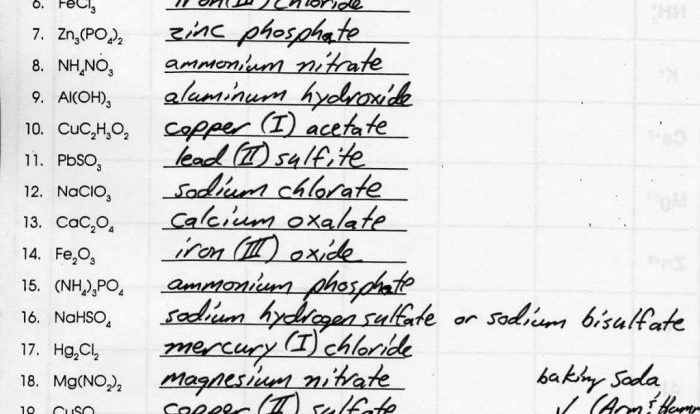 6. FeCl₃ iron (III) chloride
7. Zn₃(PO₄)₂ zinc phosphate
8. NH₄NO₃ ammonium nitrate
9. Al(OH)₃ aluminum hydroxide
10. CuC₂H₃O₂ copper (I) acetate
11. PbSO₃ lead (II) sulfite
12. NaClO₃ sodium chlorate
13. CaC₂O₄ calcium oxalate
14. Fe₂O₃ iron (III) oxide
15. (NH₄)₃PO₄ ammonium phosphate
16. NaHSO₄ sodium hydrogen sulfate or sodium bisulfate
17. Hg₂Cl₂ mercury (I) chloride
18. Mg(NO₂)₂ magnesium nitrate baking soda
19. CuSO copper (II) sulfate (Arm &